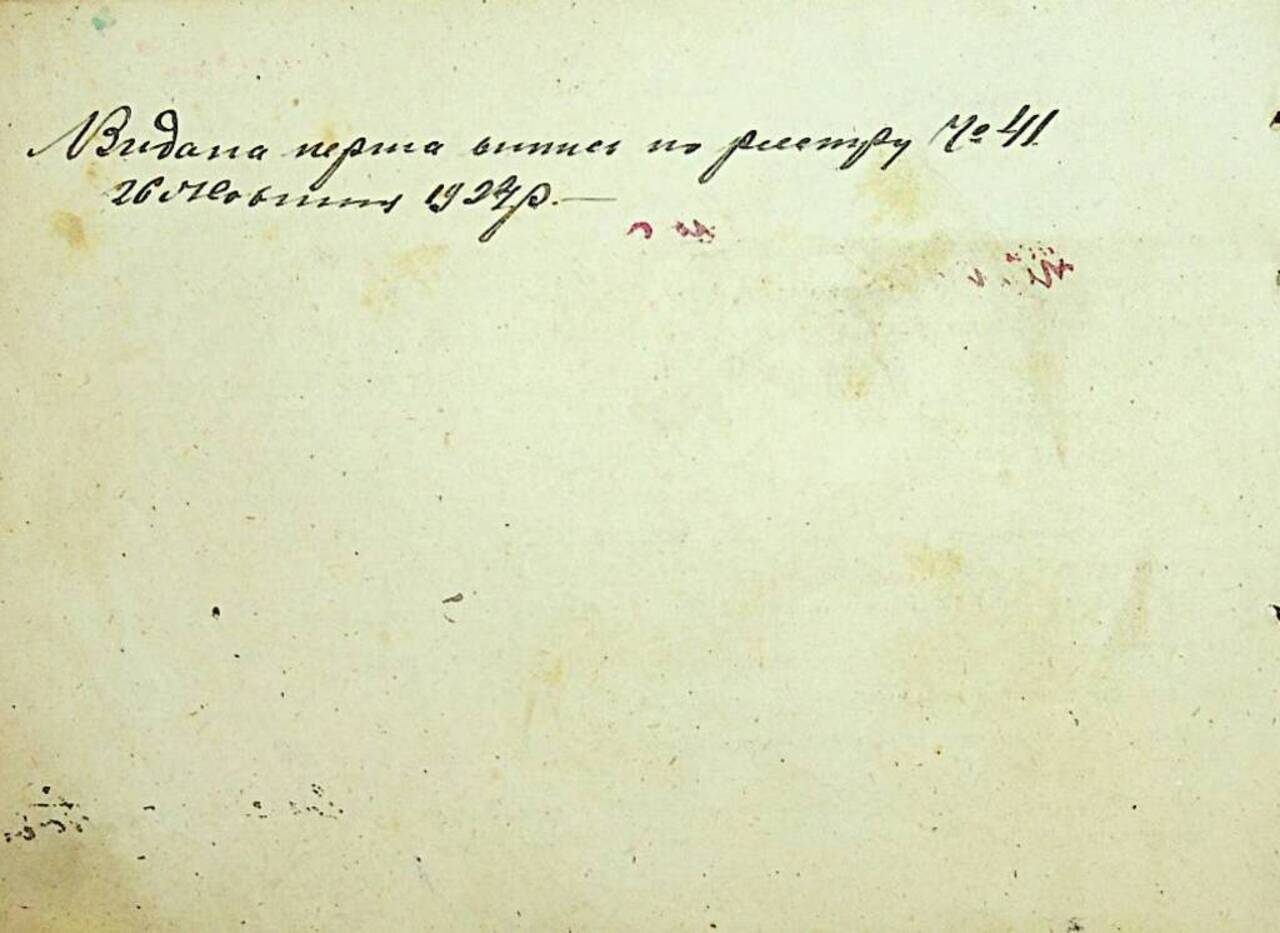 Видана перша випись по реестру № 41
26 Жовтня 1924р. —